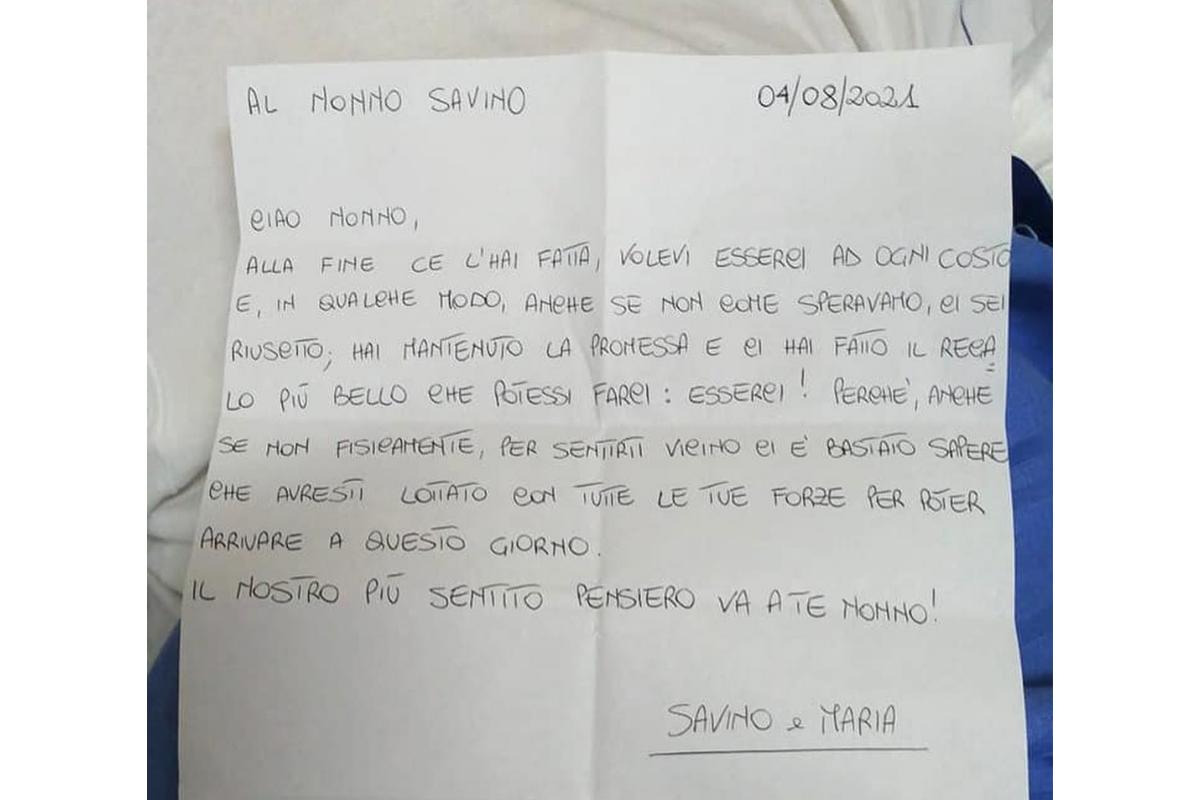 AL NONNO SAVINO
04/08/2021
CIAO NONNO,
ALLA FINE CE L'HAI FATTA, VOLEVI ESSERCI AD OGNI COSTO
E, IN QUALCHE MODO, ANCHE SE NON COME SPERAVAMO, CI SEI
RIUSCITO; HAI MANTENUTO LA PROMESSA E CI HAI FATTO IL REGA
LO PIÙ BELLO CHE POTESSI FARCI : ESSERCI ! PERCHE', ANCHE
SE NON FISICAMENTE, PER SENTIRTI VICINO CI E' BASTATO SAPERE
CHE AVRESTI LOTTATO CON TUTTE LE TUE FORZE PER POTER
ARRIVARE A QUESTO GIORNO.
IL NOSTRO PIÙ SENTITO PENSIERO VA A TE NONNO!
SAVINO e MARIA